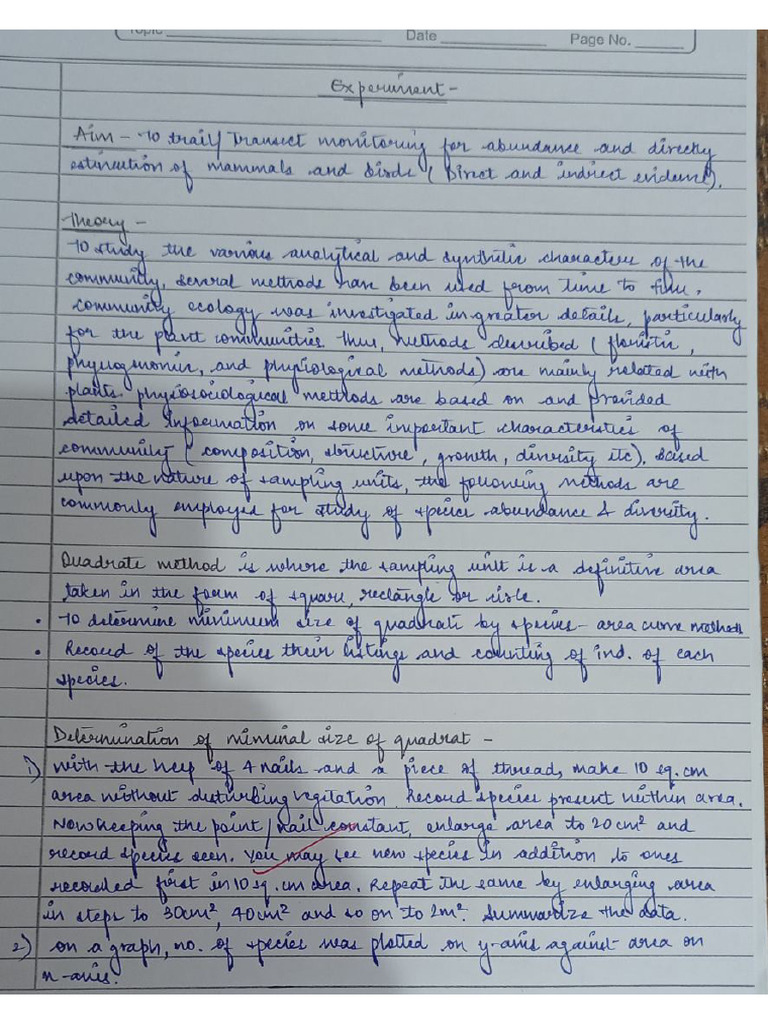 Topic Date Page No.
Experiment -
Aim - To trail/ Transect monitoring for abundance and directly
estimation of mammals and birds ( Direct and indirect evidence).
Theory -
To study the various analytical and synthetic characters of the
community, several methods have been used from time to time.
community ecology was investigated in greater details, particularly
for the plant communities thus, methods described ( floristic,
physiognomic, and physiological methods) are mainly related with
plants. phytosociological methods are based on and provided
detailed information on some important characteristics of
community ( composition, structure, growth, diversity etc). Based
upon the nature of sampling units, the following methods are
commonly employed for study of species abundance & diversity.
Quadrate method is where the sampling unit is a definitive area
taken in the form of square, rectangle or
• To determine minimum size of quadrati by species - area curve methods
• Record of the species their listings and counting of ind. of each
species.
Determination of minimal size of quadrat -
1) with the help of 4 nails and a piece of thread, make 10 sq.cm
area without disturbing vegitation. Record species present within area.
Now keeping the point/ nail constant, enlarge area to 20cm² and
record species seen. You may see new species in addition to ones
recorded first in 10 sq. cm area. Repeat the same by enlarging area
in steps to 30cm², 40cm² and so on to 2m². Summarize the data.
2) on a graph, no. of species was plotted on y-axis against area on
x-axis.